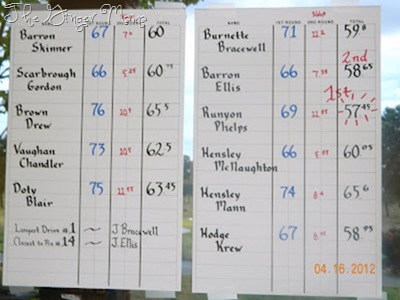 The Ginger Mane
NAME 1ST ROUND 2ND ROUND TOTAL
Barron Skinner 67 60
Scarbrough Gordon 66 5.25 60.75
Brown Drew 76 65.5
Vaughan Chandler 73 62.5
Doty Blair 75 11.55 63.45
Longest Drive #1 ~ J. Bracewell
Closest to Pin #14 ~ J. Ellis
NAME 1ST ROUND 2ND ROUND TOTAL
Burnette Bracewell 71 59.8
2nd
Barron Ellis 66 7.35 58.65
1st
Runyon Phelps 69 57.45
Hensley McNaughton 66 60.05
Hensley Mann 74 65.6
Hodge Krew 67 58.95
04.16.2012